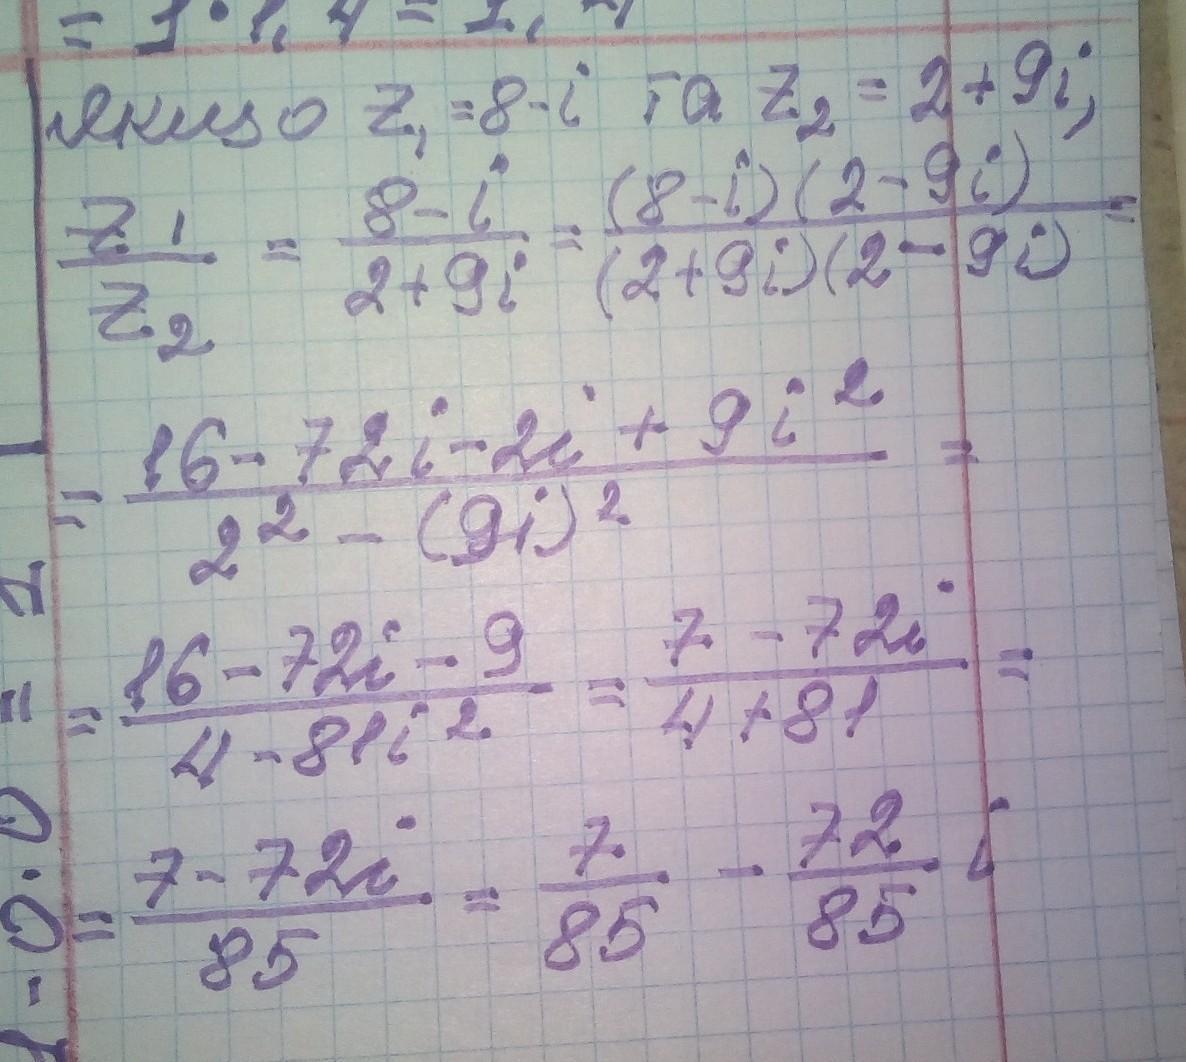 = 1 · 1,4 = 1,4
якщо Z₁ = 8 - i та Z₂ = 2 + 9i,
Z₁/Z₂ = (8 - i)/(2 + 9i) = ((8 - i)(2 - 9i))/((2 + 9i)(2 - 9i)) =
= (16 - 72i - 2i + 9i²)/(2² - (9i)²) =
= (16 - 72i - 9)/(4 - 81i²) = (7 - 72i)/(4 + 81) =
= (7 - 72i)/85 = 7/85 - 72/85 i